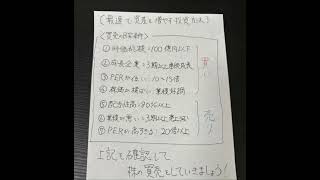 (最速で資産を増やす投資方法)
<買売の8条件>
①時価総額=100億円以下
②成長企業=3期以上連続成長
③PERが低い=10〜15倍
④株価が横ばい=業績好調
⑤配当性向=80%以上
⑥業績が悪い=3期以上売上減
⑦PERが高すぎる=20倍以上
買い
売り
上記を確認して
株の買売をしていきましょう!